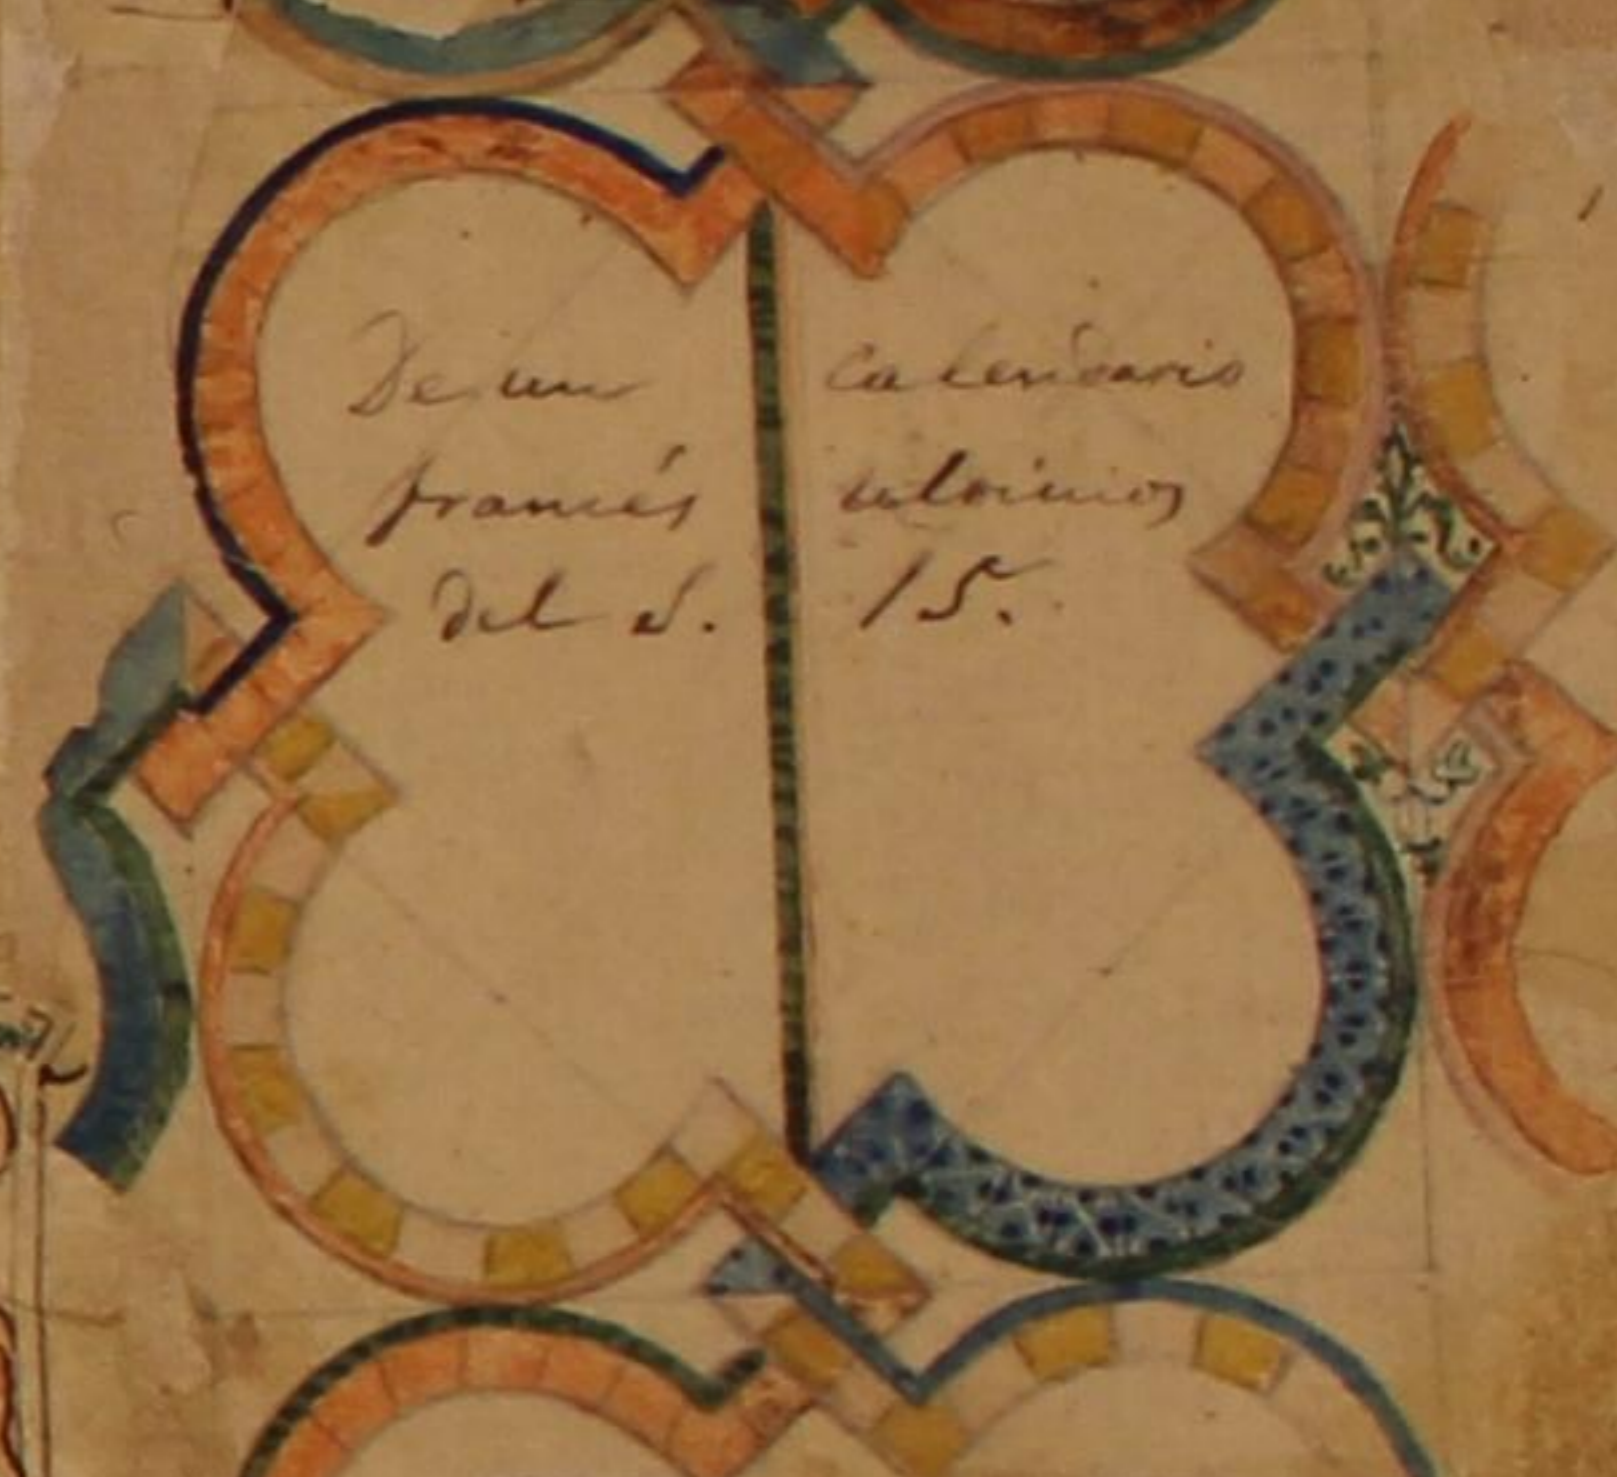 De un calendario
francés
del S. 15.